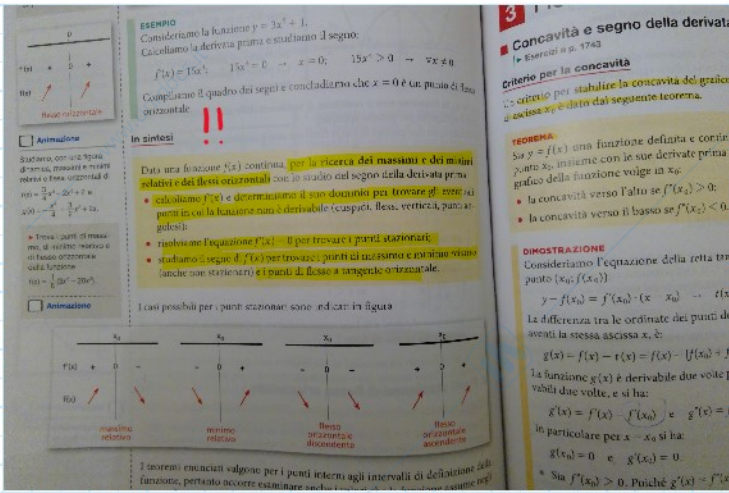 0
f'(x) + 0 +
f(x)
flesso orizzontale
Animazione
Studiamo, con una figura
dinamica, massimi e minimi
relativi e flessi orizzontali di
Trova i punti di massi-
mo, di minimo relativo e
di flesso orizzontale
della funzione
Animazione
ESEMPIO
Consideriamo la funzione y = 3x⁵ + 1.
Calcoliamo la derivata prima e studiamo il segno:
f'(x) = 15x⁴; 15x⁴ = 0 → x = 0; 15x⁴ > 0 → ∀x ≠ 0
Compiliamo il quadro dei segni e concludiamo che x = 0 è un punto di
orizzontale.
!!
In sintesi
Data una funzione f(x) continua, per la ricerca dei massimi e dei minimi
relativi e dei flessi orizzontali con lo studio del segno della derivata prima
• calcoliamo f'(x) e determiniamo il suo dominio per trovare gli eventuali
punti in cui la funzione non è derivabile (cuspidi, flessi verticali, punti an-
golosi);
• risolviamo l'equazione f'(x) = 0 per trovare i punti stazionari;
• studiamo il segno di f'(x) per trovare i punti di massimo e minimo relativo
(anche non stazionari) e i punti di flesso a tangente orizzontale.
I casi possibili per i punti stazionari sono indicati in figura
x₀ x₀ x₀ x₀
f'(x) + 0 - - 0 + - 0 - + 0 +
f(x)
massimo
relativo
minimo
relativo
flesso
orizzontale
discendente
flesso
orizzontale
ascendente
I teoremi enunciati valgono per i punti interni agli intervalli di definizione della
funzione, pertanto occorre esaminare anche i
3
Concavità e segno della derivata
▶ Esercizi a p. 1743
Criterio per la concavità
Un criterio per stabilire la concavità del grafico
di ascissa x₀ è dato dal seguente teorema.
TEOREMA
Sia y = f(x) una funzione definita e contin
punto x₀, insieme con le sue derivate prima
grafico della funzione volge in x₀:
• la concavità verso l'alto se f''(x₀) > 0;
• la concavità verso il basso se f''(x₀) < 0.
DIMOSTRAZIONE
Consideriamo l'equazione della retta tan
punto (x₀; f(x₀))
y − f(x₀) = f'(x₀) · (x − x₀) → t(x
La differenza tra le ordinate dei punti d
aventi la stessa ascissa x, è:
g(x) = f(x) − t(x) = f(x) − [f(x₀) + f
La funzione g(x) è derivabile due volte p
vabili due volte, e si ha:
g'(x) = f'(x) − f'(x₀) e g''(x) =
in particolare per x = x₀ si ha:
g(x₀) = 0 e g'(x₀) = 0.
• Sia f''(x₀) > 0. Poiché g''(x) = f''(x